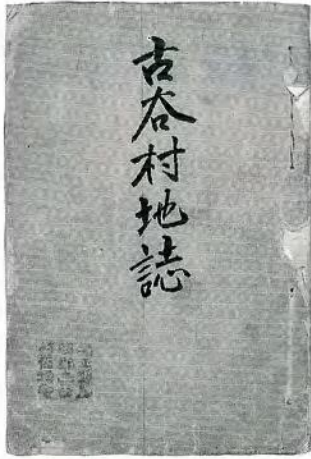 古谷村地誌